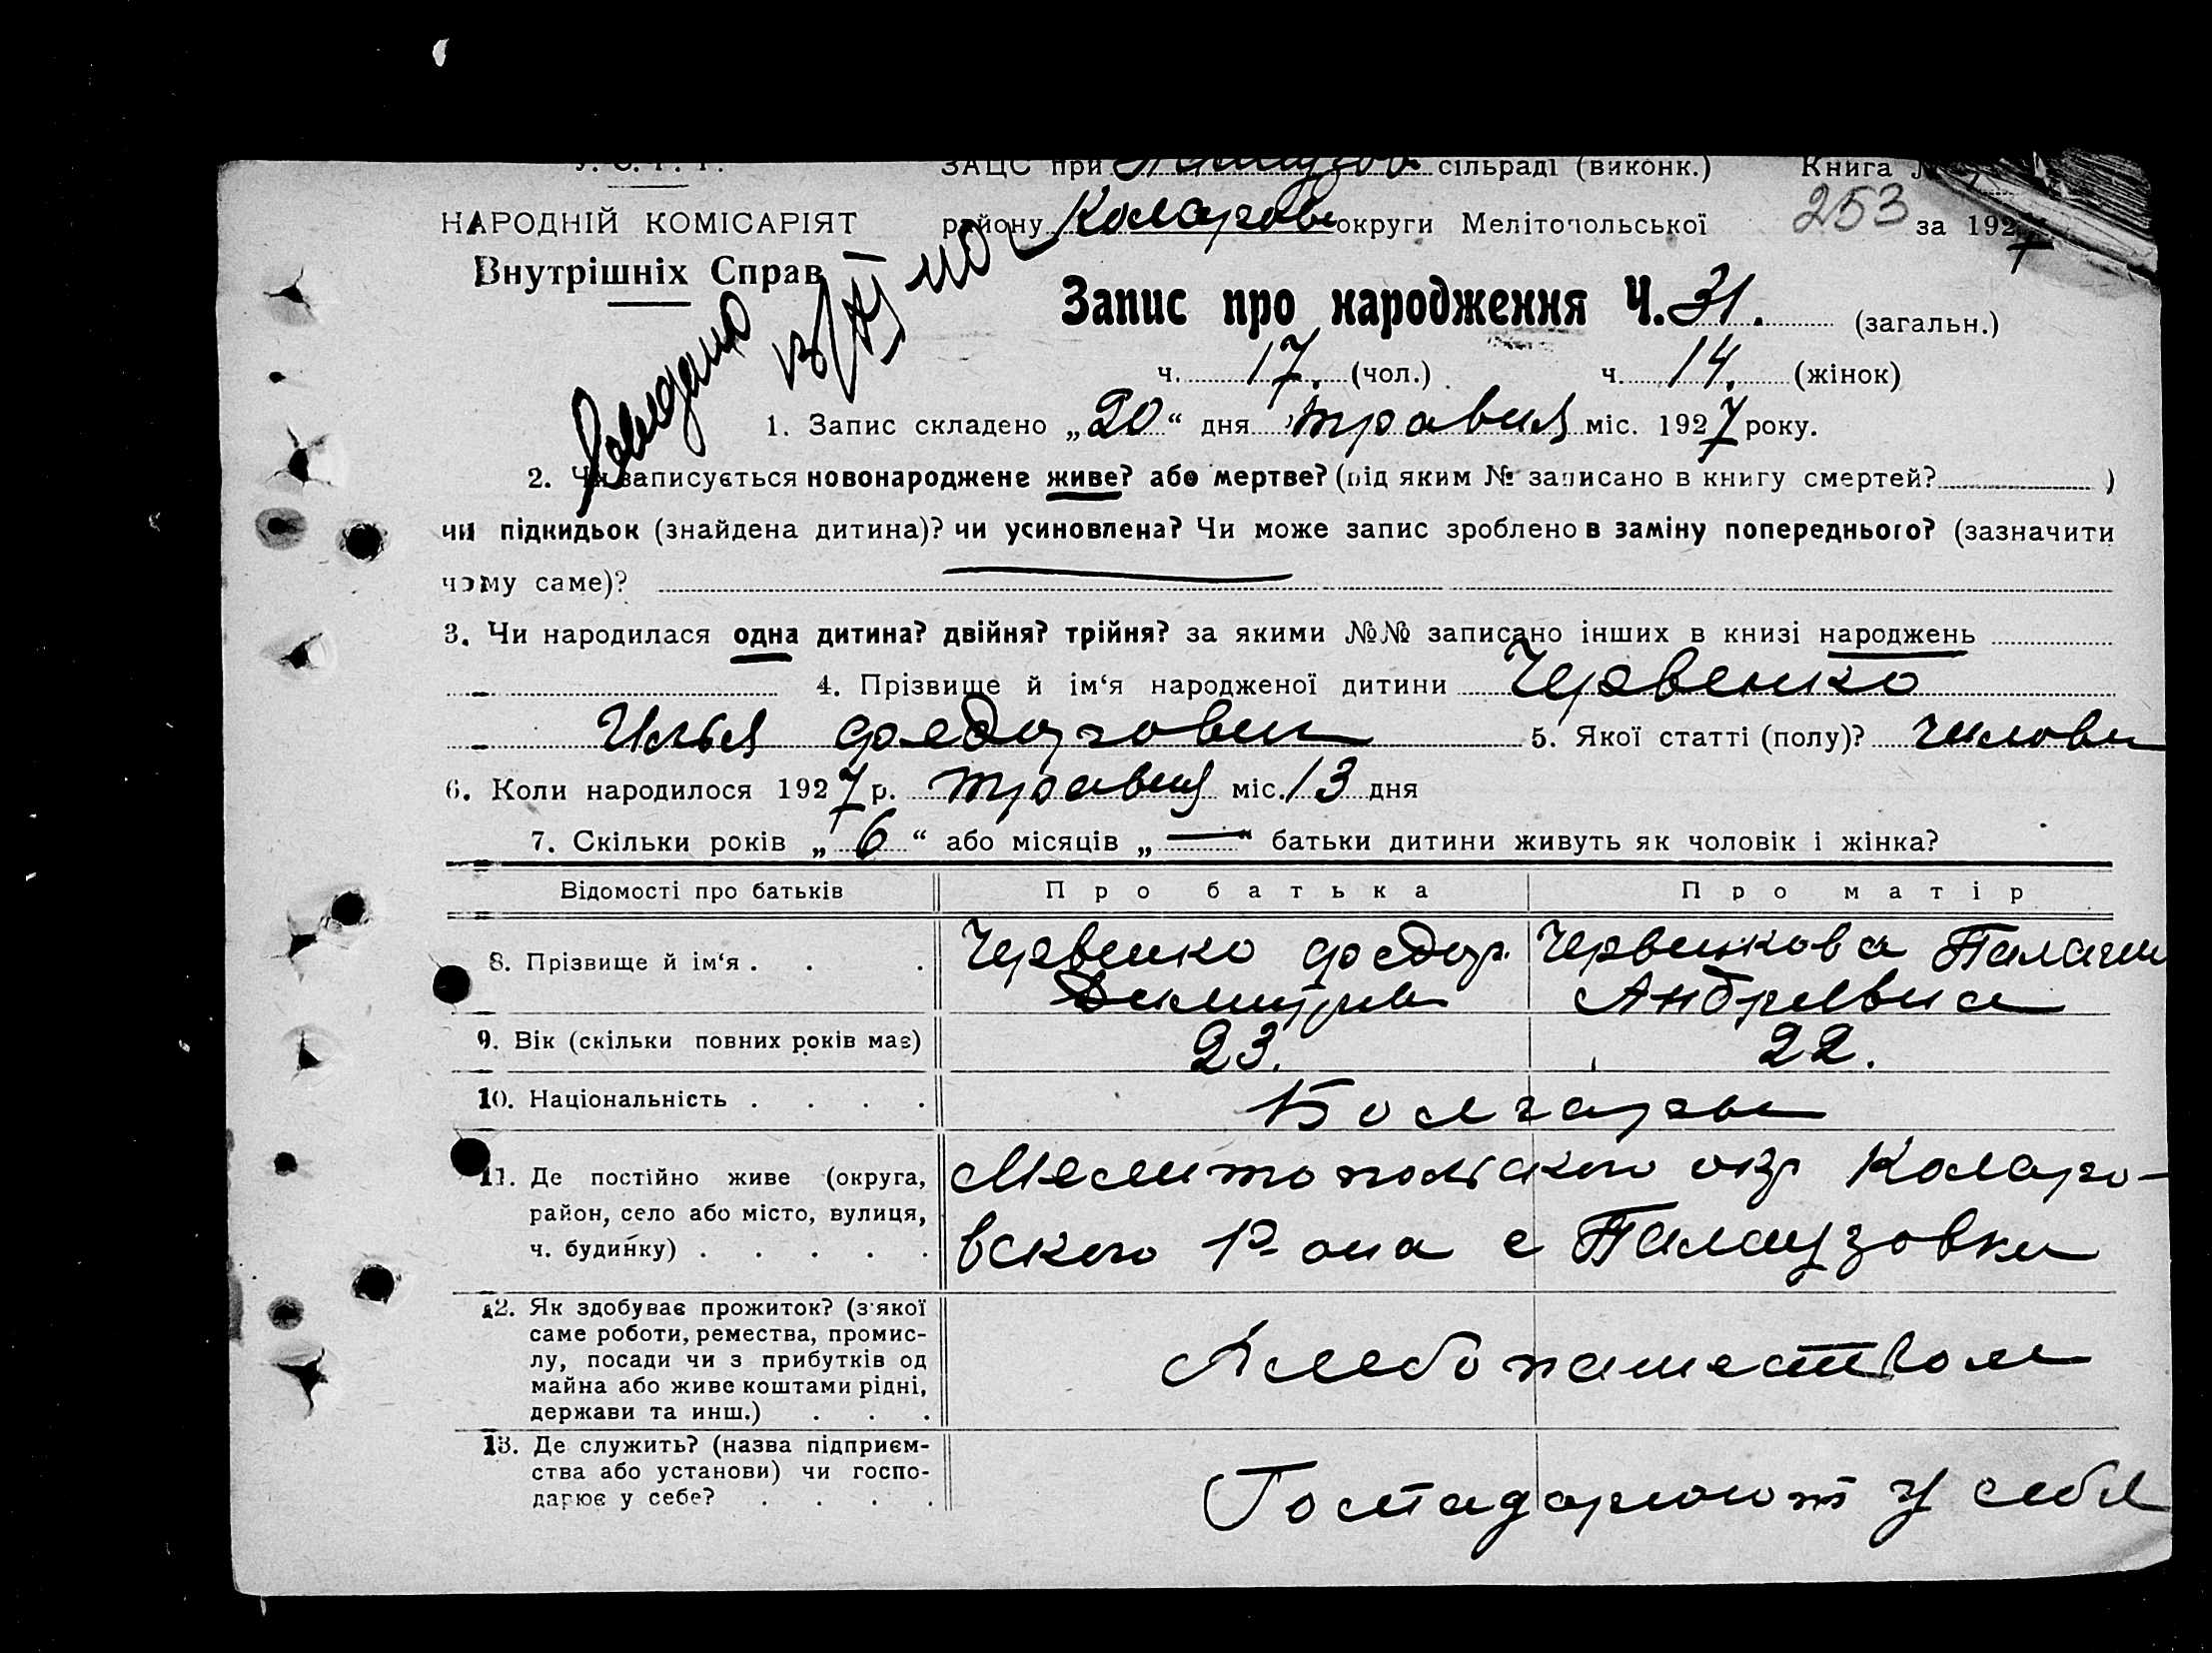 У. С. Р. Р.
ЗАЦС при Палаузов сільраді (виконк.) Книга №
НАРОДНІЙ КОМІСАРІЯТ
району Коларовс округи Мелітопольської 253 за 1927
Внутрішніх Справ
Запис про народження Ч. 31. (загальн.)
ч. 17. (чол.) ч. 14. (жінок)
1. Запис складено „20“ дня травня міс. 1927 року.
2. Чи записується новонароджене живе? або мертве? (під яким № записано в книгу смертей? )
чи підкидьок (знайдена дитина)? чи усиновлена? Чи може запис зроблено в заміну попереднього? (зазначити
чому саме)?
3. Чи народилася одна дитина? двійня? трійня? за якими №№ записано інших в книзі народжень
4. Прізвище й ім‘я народженої дитини Червенко
Илья Федорович 5. Якої статті (полу)? чилови
6. Коли народилося 1927 р. травня міс. 13 дня
7. Скільки років „6“ або місяців „—“ батьки дитини живуть як чоловік і жінка?
Відомості про батьків Про батька Про матір
8. Прізвище й ім‘я . . . Червенко Федор. Червенкова Палагии
Андревна
9. Вік (скільки повних років має) 23. 22.
10. Національність . . . . Болгары
11. Де постійно живе (округа, Мелитопольского окр Коларо-
район, село або місто, вулиця,
ч. будинку) . . . . . вского Р-она с Палаузовки
12. Як здобуває прожиток? (з'якої
саме роботи, ремества, промис-
лу, посади чи з прибутків од Хлебопашеством
майна або живе коштами рідні,
держави та инш.) . . .
13. Де служить? (назва підприєм-
ства або установи) чи госпо-
дарює у себе? . . . . Господарюют у себя